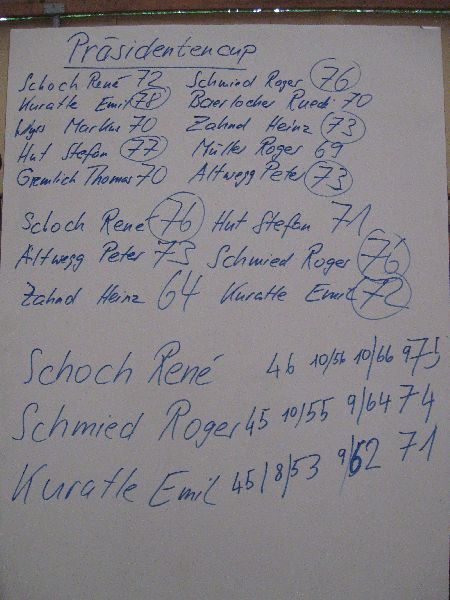 Präsidentencup
Schoch René 72 Schmied Roger 76
Kuratle Emil 78 Baerlocher Ruedi 70
Wyss Markus 70 Zahnd Heinz 73
Hut Stefan 77 Müller Roger 69
Gremlich Thomas 70 Altwegg Peter 73
Schoch René 76 Hut Stefan 71
Altwegg Peter 73 Schmied Roger 76
Zahnd Heinz 64 Kuratle Emil 72
Schoch René 46 10/56 10/66 9 75
Schmied Roger 45 10/55 9/64 74
Kuratle Emil 45/8/53 9/62 71